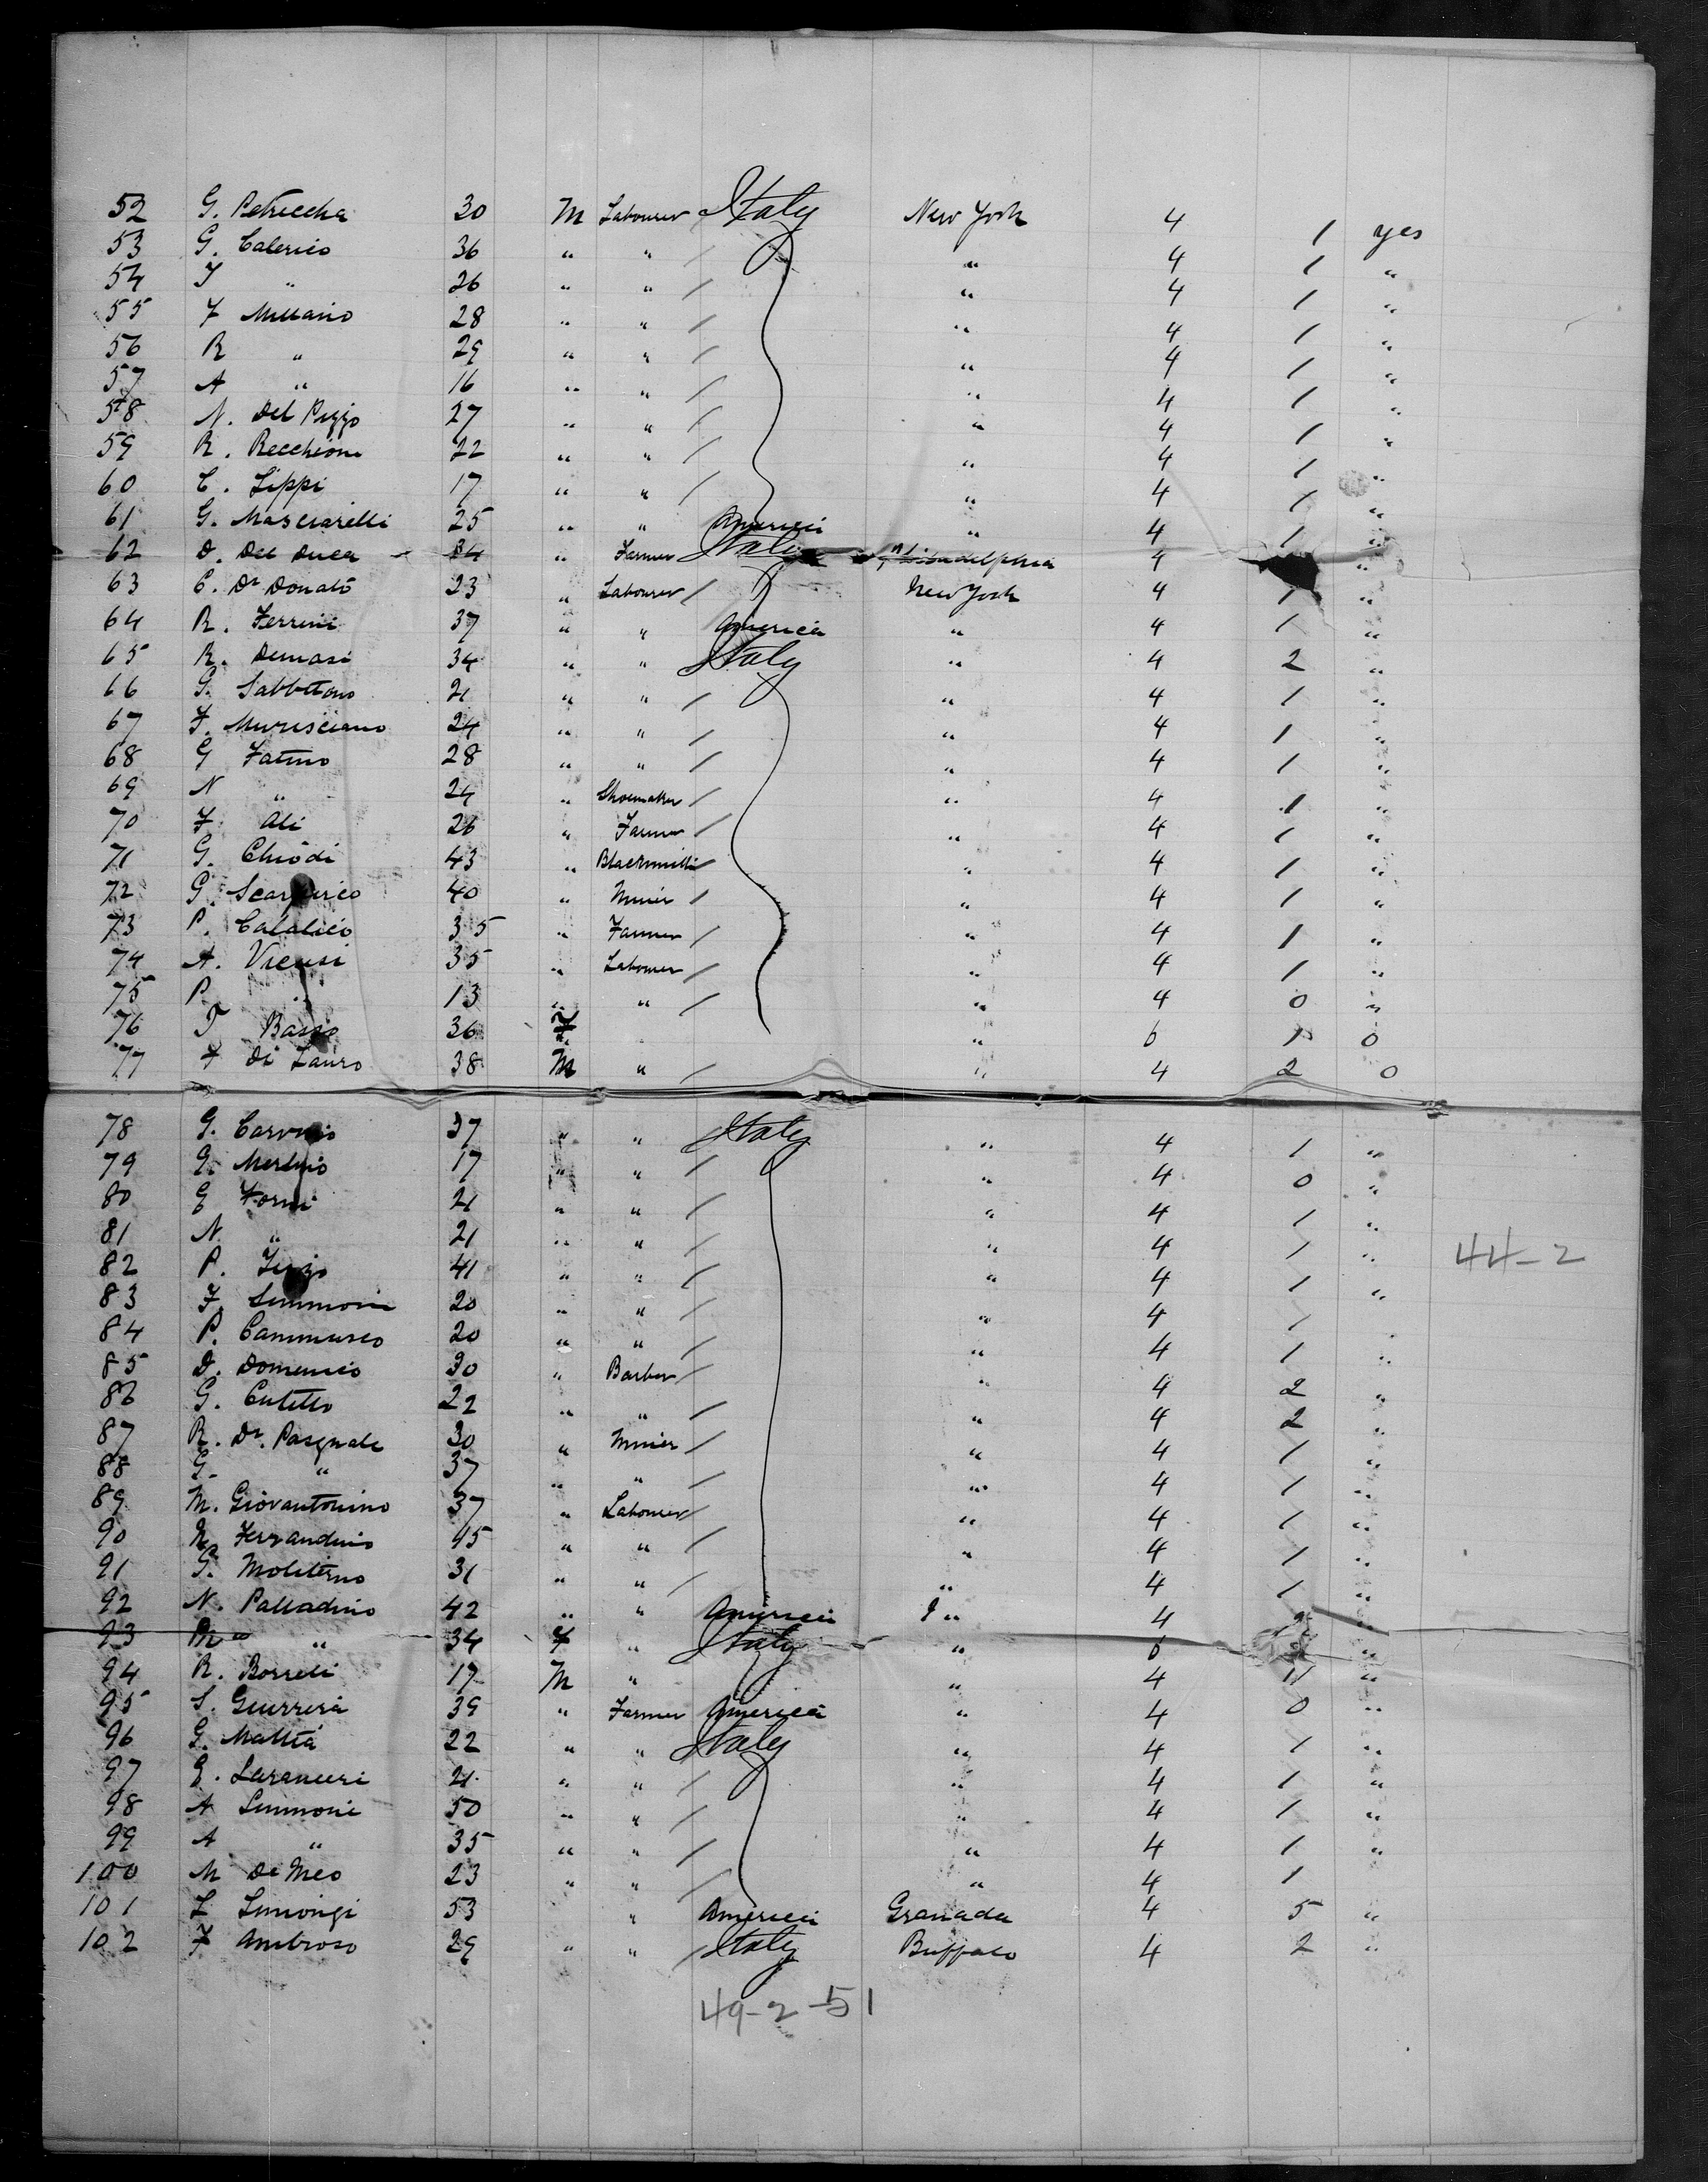 52 G. Petriccha 30 M Labourer Italy New York 4 1 yes
53 G. Calerico 36 " " / " 4 1 "
54 T " 26 " " / " 4 1 "
55 F Millario 28 " " / " 4 1 "
56 R " 29 " " / " 4 1 "
57 A " 16 " " / " 4 1 "
58 N. Del Pizzo 27 " " / " 4 1 "
59 R. Recchioni 22 " " / " 4 1 "
60 C. Lippi 17 " " / " 4 1 "
61 G. Masciarelli 25 " " America " 4 1 "
62 D. Del Duca 24 " Farmer Italy Philadelphia 4 "
63 C. Di Donato 23 " Labourer / New York 4 1 "
64 R. Ferrini 37 " " America " 4 1 "
65 R. Demasi 34 " " Italy " 4 2 "
66 G. Sabbttono 21 " " / " 4 1 "
67 F. Murisciano 24 " " / " 4 1 "
68 G Fatino 28 " " / " 4 1 "
69 N " 24 " Shoemaker / " 4 1 "
70 F Ali 26 " Farmer / " 4 1 "
71 G. Chiodi 43 " Blacksmith / " 4 1 "
72 G. 40 " Minir / " 4 1 "
73 P. Calalici 35 " Farmer / " 4 1 "
74 A. Vicusi 35 " Labourer / " 4 1 "
75 P. " 13 " " / " 4 0 "
76 T Basso 36 F " 6 1 0
77 F Di Lauro 38 M " / " 4 2 0
78 G. 37 " " Italy " 4 1 "
79 G. Merlino 17 " " / " 4 0 "
80 G Forni 21 " " / " 4 1 "
81 N. " 21 " " / " 4 1 " 44-2
82 P. 41 " " / " 4 1 "
83 F. Simmoni 20 " " / " 4 1
84 P. Cammusco 20 " " / " 4 1 "
85 D. Domenico 30 " Barber / " 4 2 "
86 G. Cutitto 22 " " / " 4 2 "
87 R. Di Pasquale 30 " Minir / " 4 1 "
88 G. " 37 " " / " 4 1 "
89 M. Giovantonino 37 " Labourer / " 4 1 "
90 N. Ferrandino 45 " " / " 4 1 "
91 G. Moliterno 31 " " / " 4 1 "
92 N. Palladino 42 " " America " 4 "
93 " 34 F " Italy " 6 "
94 R. Borrelli 17 M " " 4 11 "
95 S. Guerrera 39 " Farmer America " 4 0 "
96 G. Mattia 22 " " Italy " 4 1 "
97 G. Saranieri 21 " " / " 4 1 "
98 A Simmoni 50 " " / " 4 1 "
99 A " 35 " " / " 4 1 "
100 M De Meo 23 " " / " 4 1
101 L Limongi 53 " America Granada 4 5 "
102 F Ambroso 29 " " / Italy Buffalo 4 2 "
49-2-51